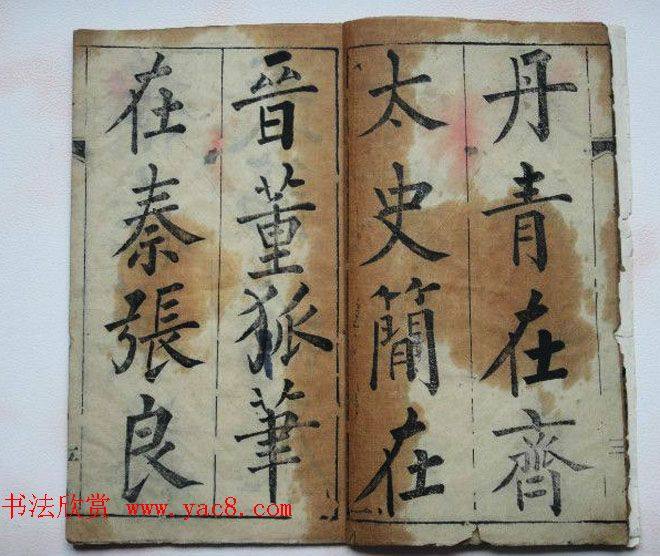 丹青在齊
太史簡在
晉董狐筆
在秦張良
书法欣赏 www.yac8.com